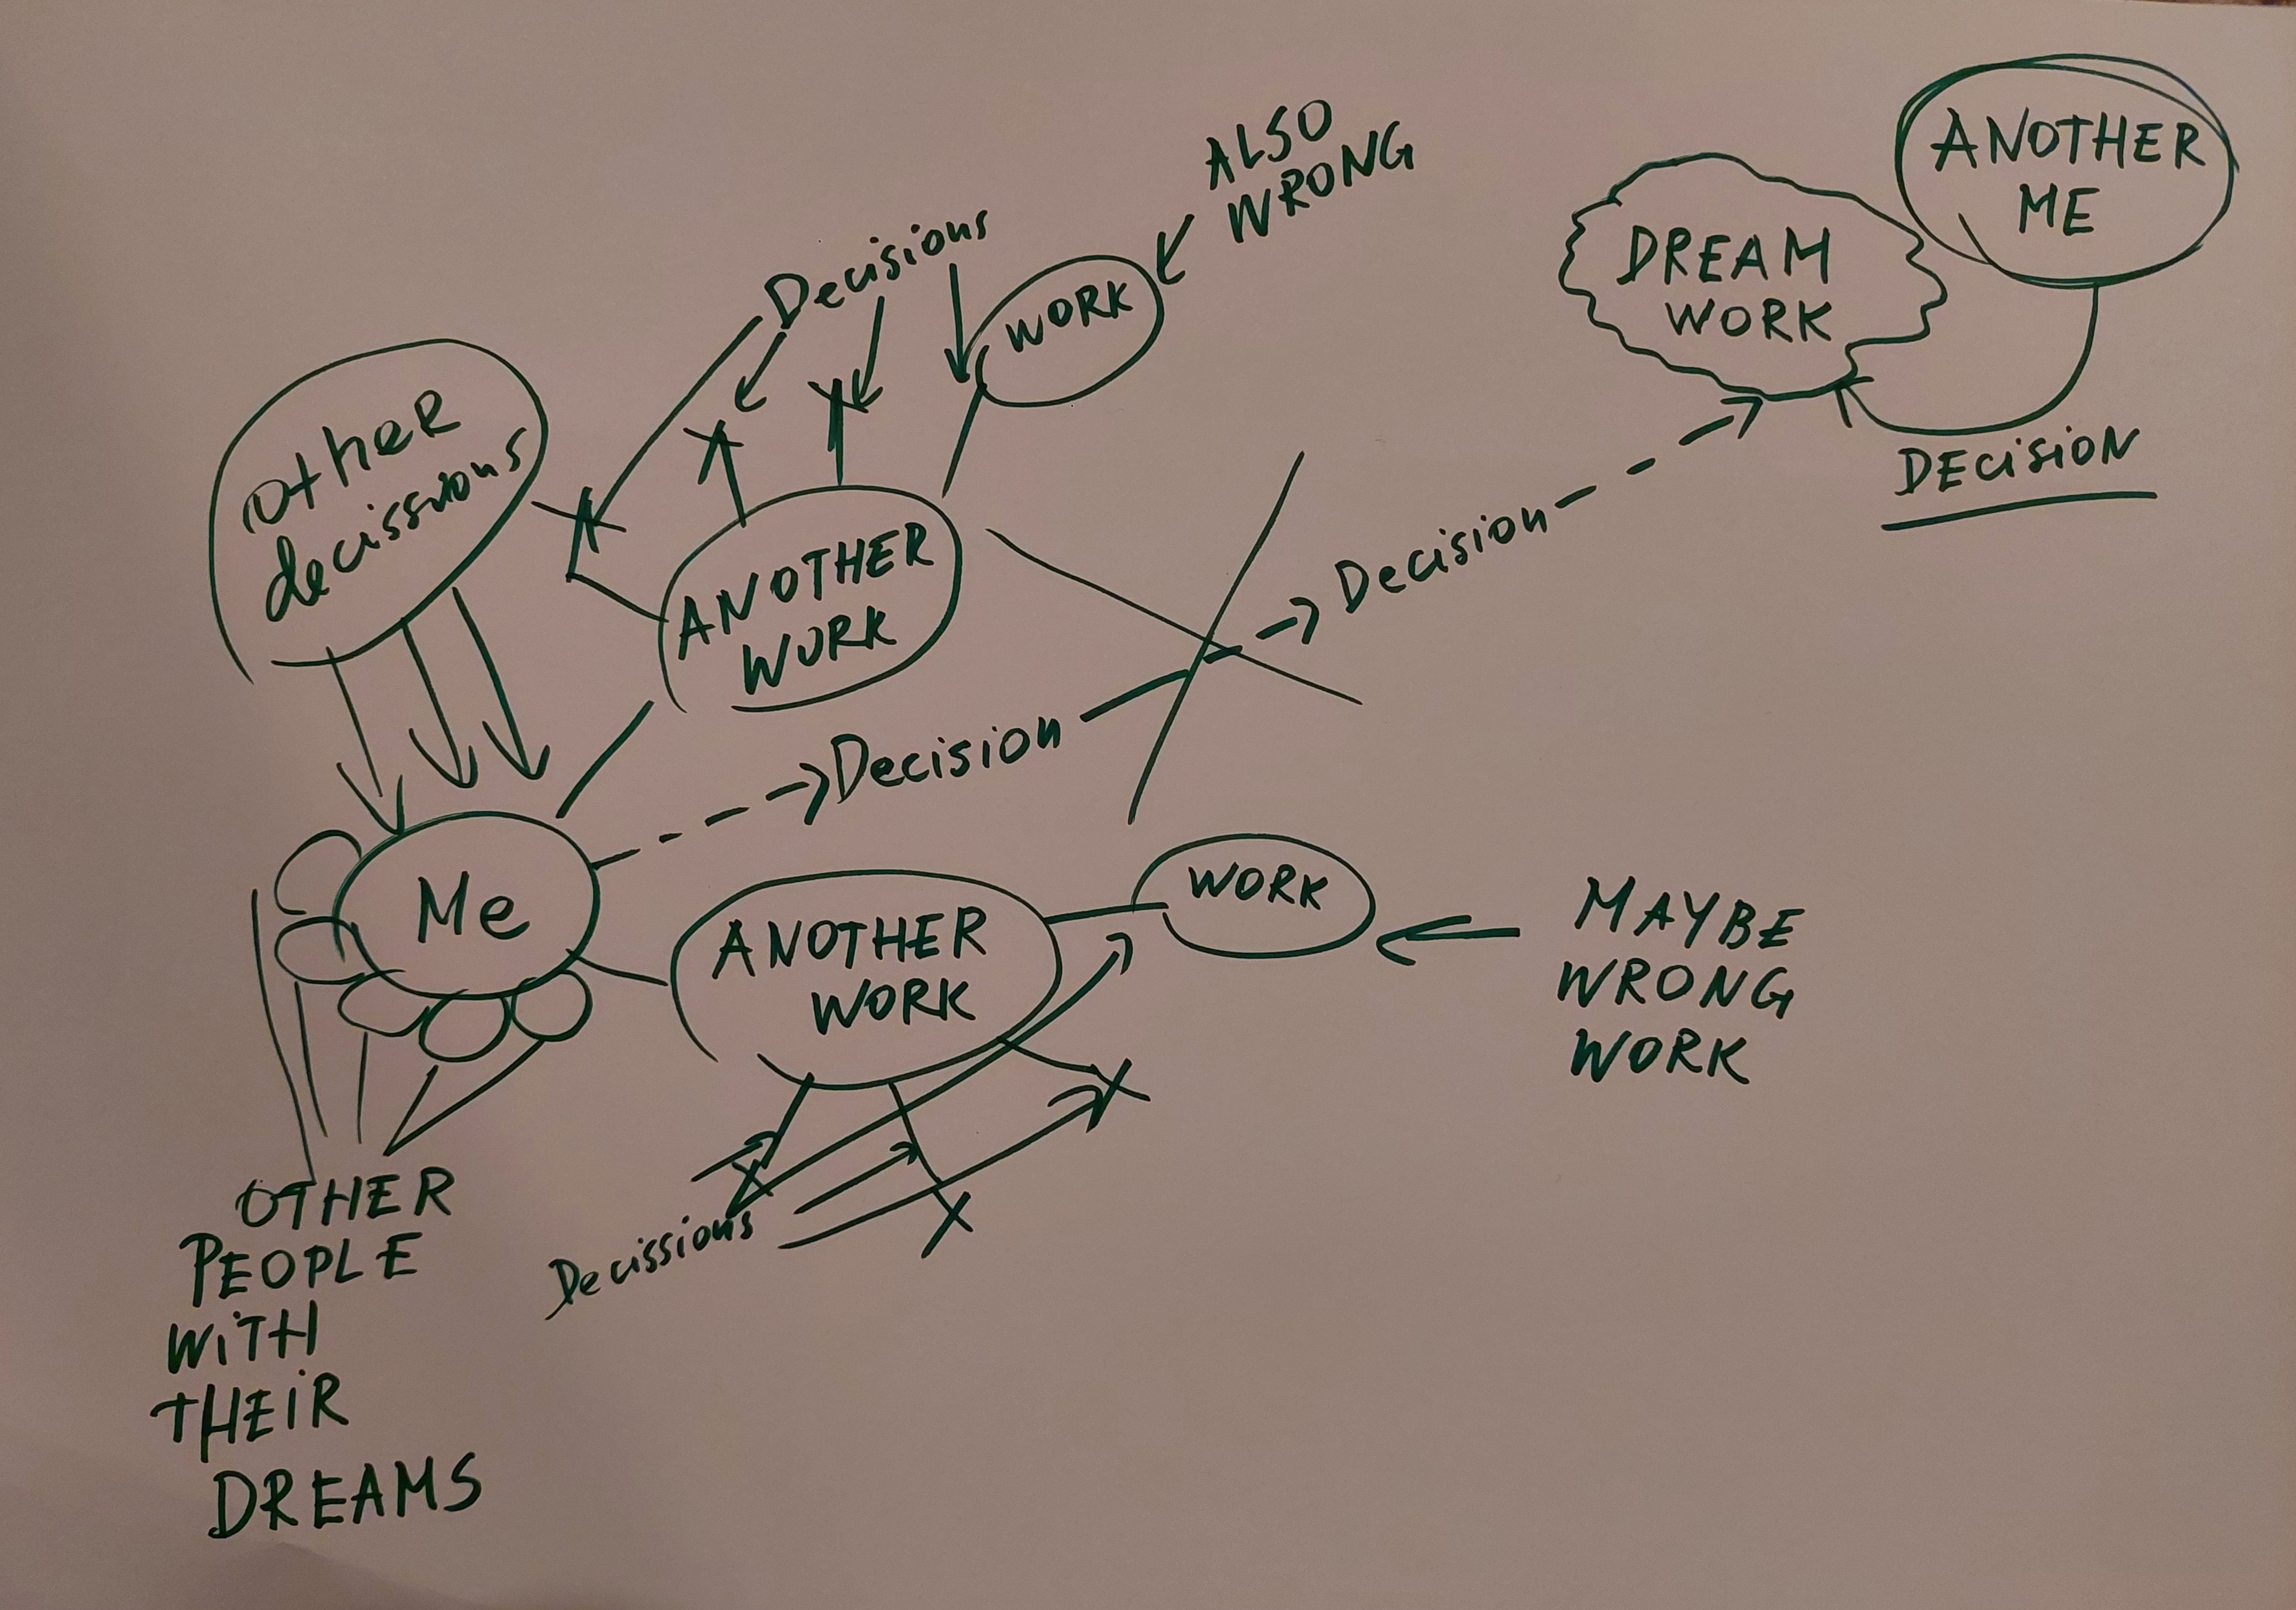 ANOTHER
ME
ALSO
WRONG
DREAM
WORK
Decisions
WORK
DECISION
Other
decissions
Decision
ANOTHER
WORK
Decision
Me
ANOTHER
WORK
WORK
MAYBE
WRONG
WORK
Decissions
OTHER
PEOPLE
WITH
THEIR
DREAMS